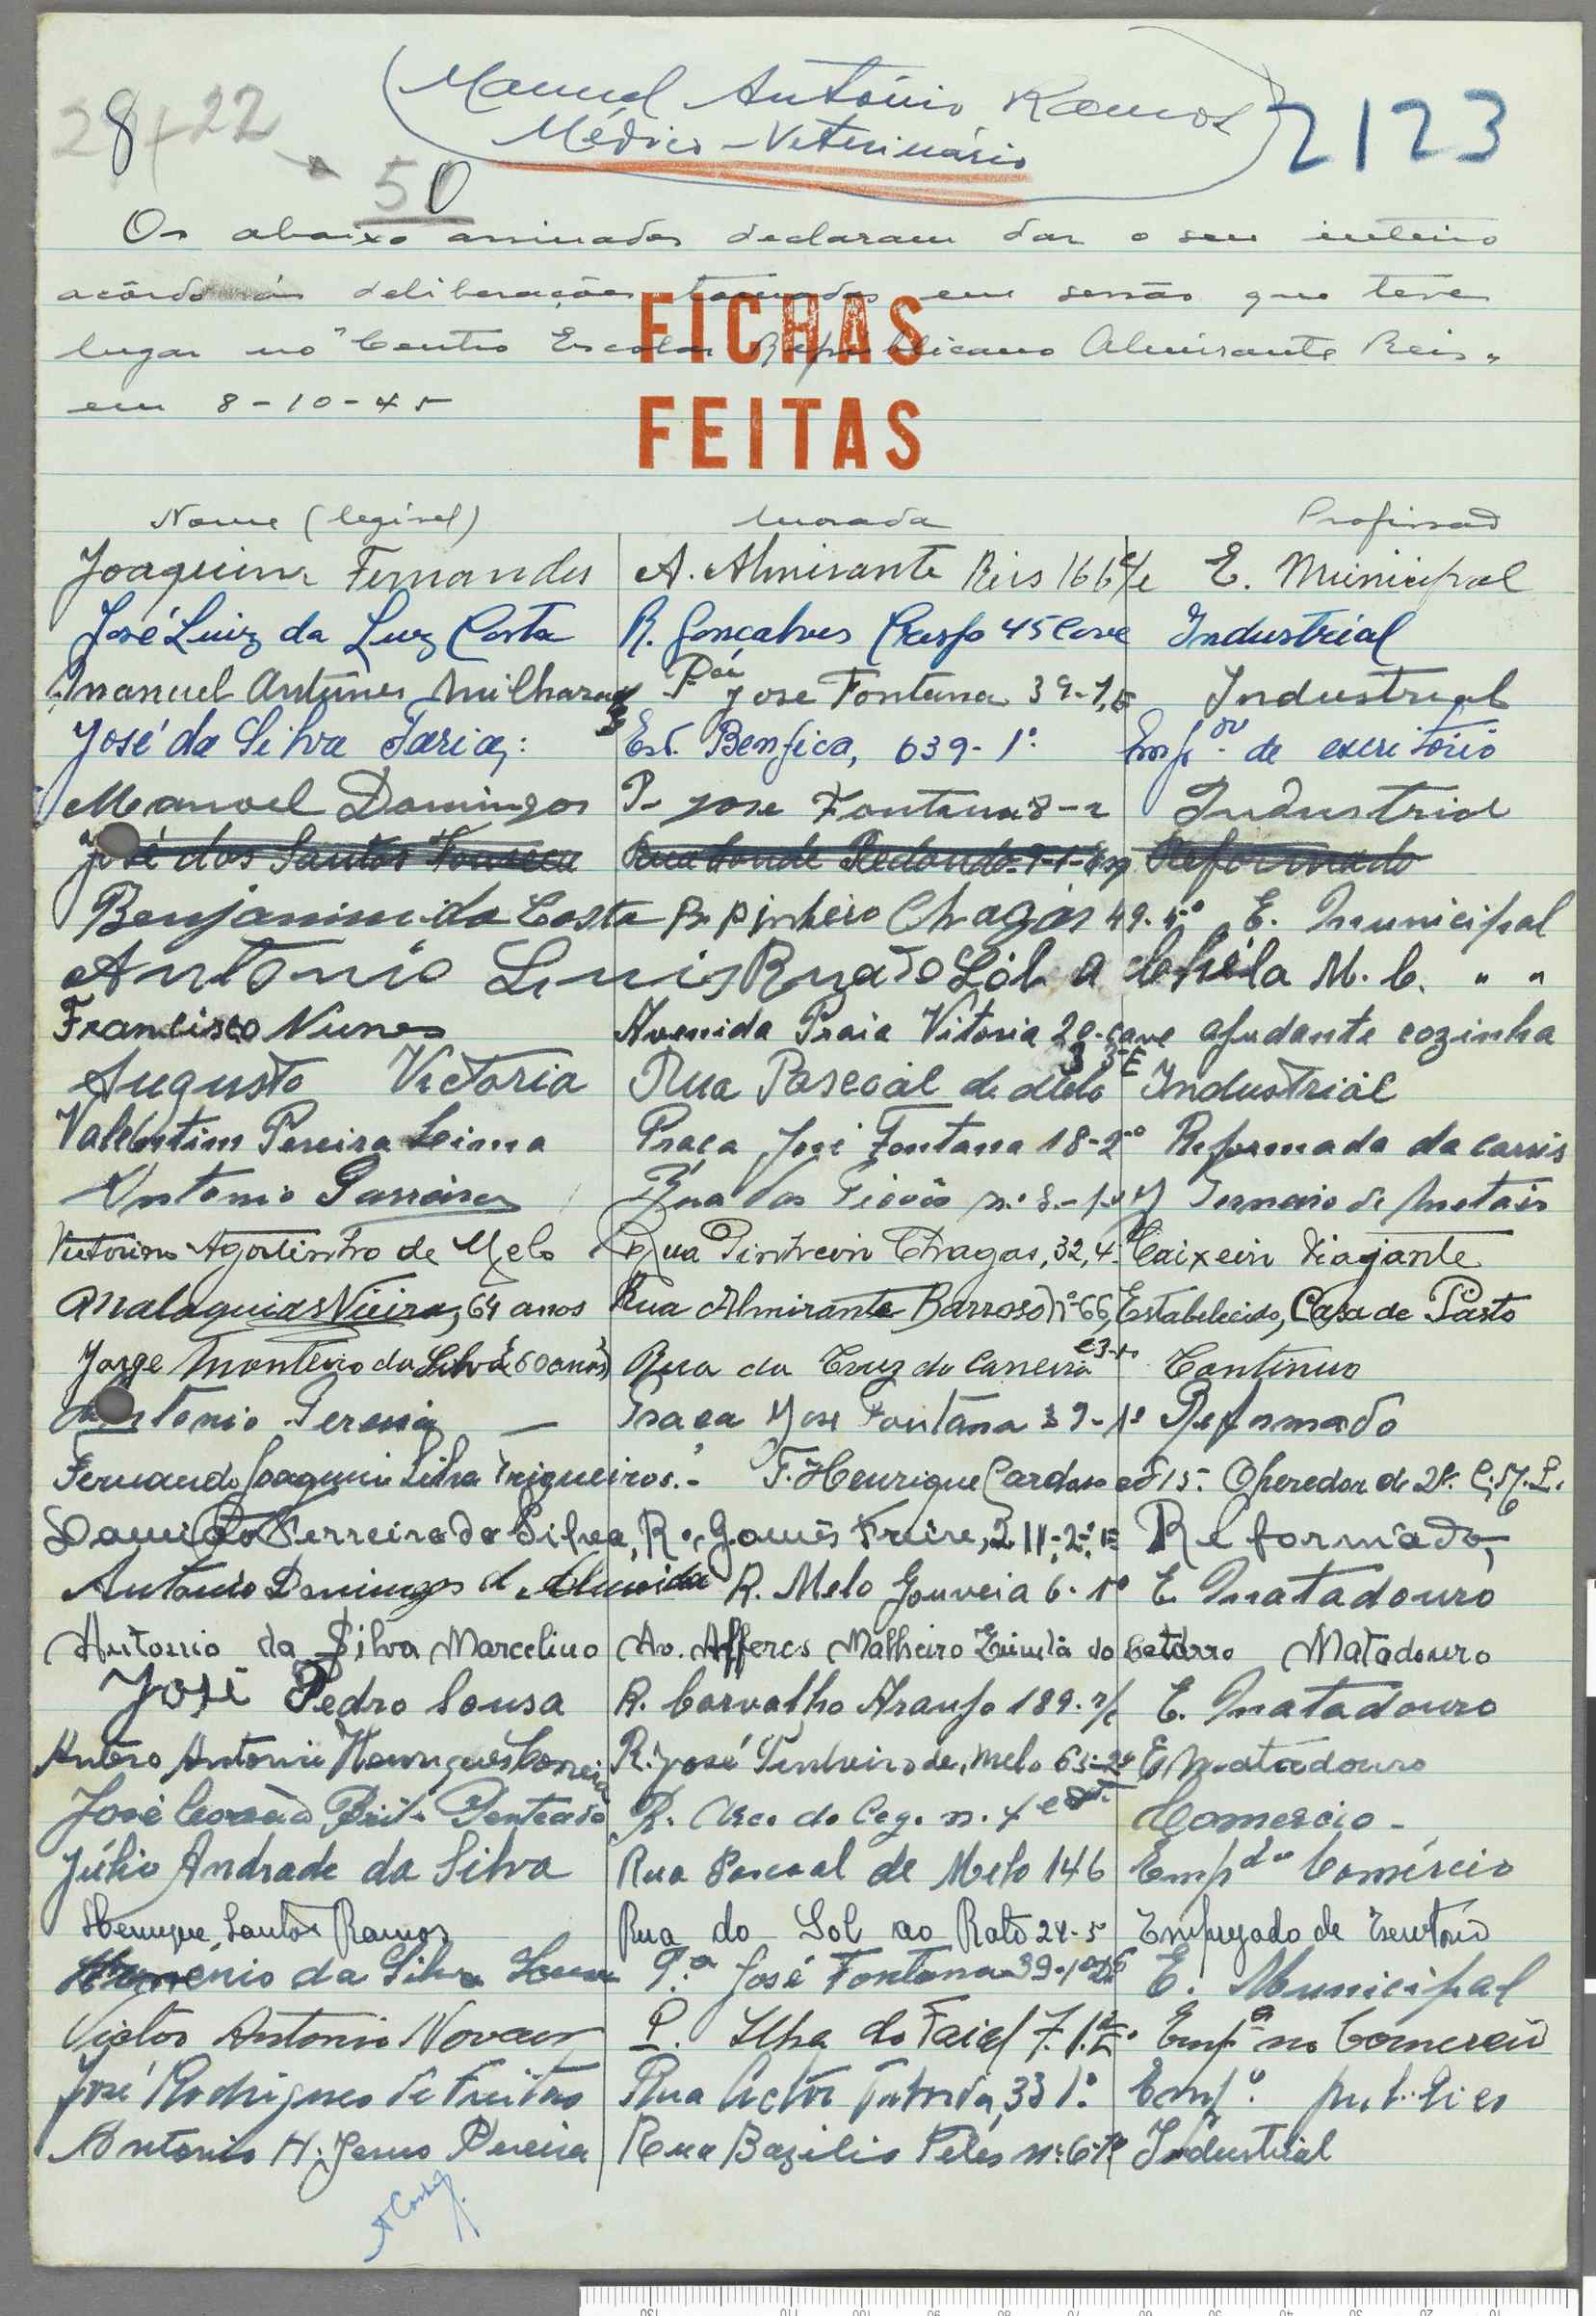 Manuel António Ramos
Médico-Veterinário
2123
28+22
50
Os abaixo assinados declaram dar o seu inteiro
acôrdo ás deliberações tomadas em sessão que teve
lugar no "Centro Escolar Republicano Almirante Reis"
em 8-10-45
FICHAS
FEITAS
Nome (legível) Morada Profissão
Joaquim Fernandes A. Almirante Reis 166 c/e E. Municipal
José Luiz da Luz Costa R. Gonçalves Crespo 45 Cave Industrial
Manuel Antunes Milharadas Pça José Fontana 39-1,E Industrial
José da Silva Faria Est. Benfica, 639-1º Empº de escritório
Manoel Domingos P. José Fontana 8-2 Industrial
José dos Santos Fonseca Rua Conde Redondo-9-1-Esq Reformado
Benjamim da Costa R. Pinheiro Chagas 49.4º E. Municipal
António Luis Rua do Sol a Chela M. C. " "
Francisco Nunes Avenida Praia Vitoria 20-cave ajudante cozinha
Augusto Victoria Rua Pascoal de Melo 3 3º E Industrial
Valentim Pereira Leima Praça José Fontana 18-2º Reformado da carris
Antonio Parreira Rua dos n.º 8-1º Torneiro de Metais
Victorino Agostinho de Melo Rua Pinheiro Chagas, 32,4º Caixeiro Viajante
Malaquias Vieira, 64 anos Rua Almirante Barroso, nº 66, Estabelecido, Casa de Pasto
Jorge Monteiro da Silva (60 anos) Rua da Cruz da Carreira Contínuo
Antonio Pereira — Praça José Fontana 39-1º Reformado
Fernando Joaquim Silva Trigueiros.- T. Henrique Cardoso 15- Operador de 2ª.
Ferreira da Silva, R. Gomes Freire, 211-2º E Reformado,
António Domingos d'Almeida R. Melo Gouveia 6-1º E. Matadouro
Antonio da Silva Marcelino Av. Afferes Malheiro Matadouro
José Pedro Sousa R. Carvalho Araujo 189-r/c E. Matadouro
Antero Antonio Henriques Correia R. José Pinheiro de Melo 65-2º E. Matadouro
José Corrêa Brito Penteado R. Arco do Cego n. 4 Comercio-
Júlio Andrade da Silva Rua Pascoal de Melo 146 Empdo Comércio
Henrique Santos Ramos Rua do Sol ao Rato 24-5 Empregado de Escritório
da Silva Pª José Fontana-39-1º E. Municipal
Victor Antonio Novais P. Ilha do Faial 7.1.E. Empº no Comercio
José Rodrigues de Freitas Rua Actor Taborda, 33 1º Empº publico
Antonio H. Jesus Pereira Rua Bazilio Teles nº 6-1º Industrial